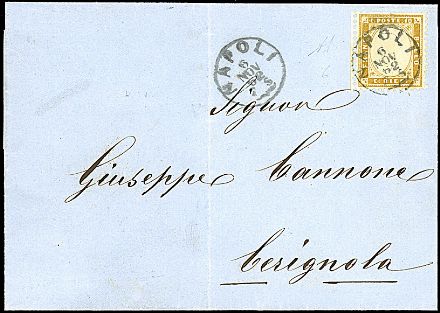 NAPOLI
6
NOV
62
C. POSTA 10
NAPOLI
6
NOV
62
Signor
Giuseppe Cannone
Cerignola